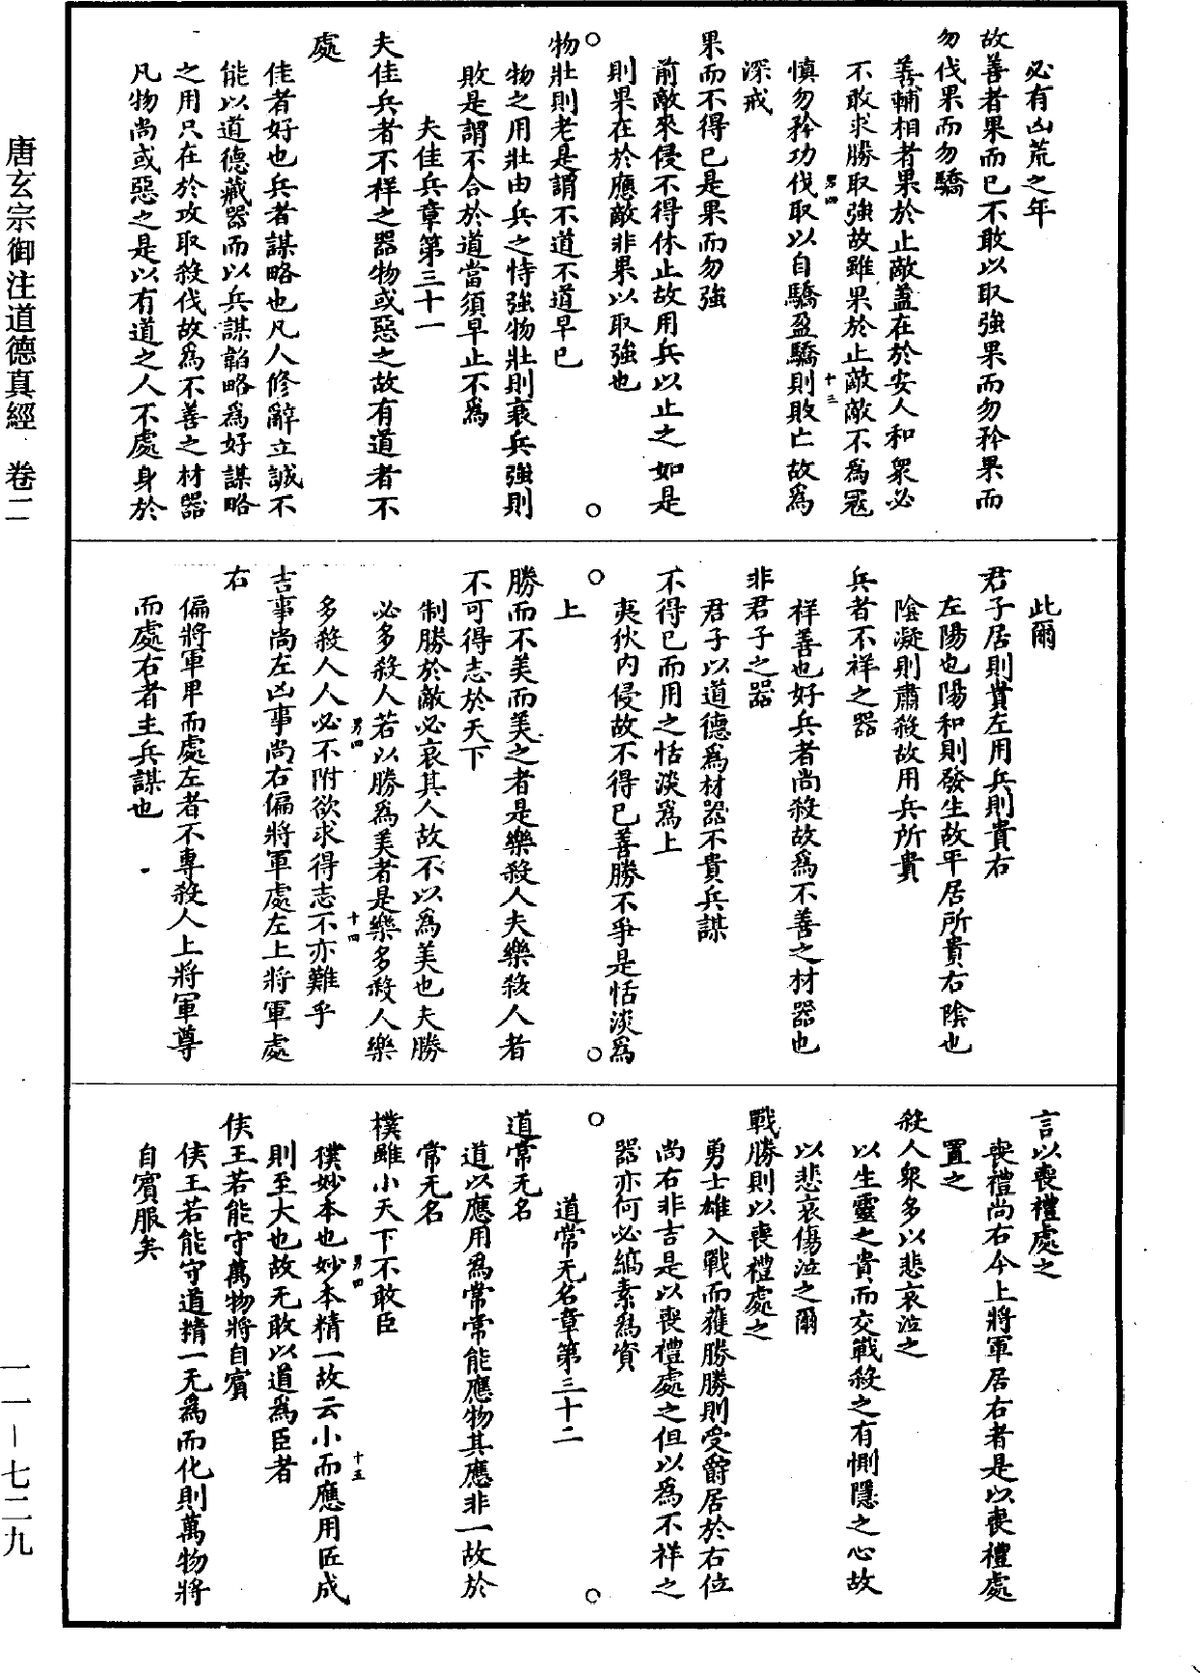 必有凶荒之年
故善者果而已不敢以取強果而勿矜果而
勿伐果而勿驕
善輔相者果於止敵蓋在於安人和衆必
不敢求勝取強故雖果於止敵敵不爲寇
男四
十三
慎勿矜功伐取以自驕盈驕則敗亡故爲
深戒
果而不得已是果而勿強
前敵來侵不得休止故用兵以止之如是
則果在於應敵非果以取強也
物壯則老是謂不道不道早已
物之用壯由兵之恃強物壯則衰兵強則
敗是謂不合於道當須早止不爲
夫佳兵章第三十一
夫佳兵者不祥之器物或惡之故有道者不
處
佳者好也兵者謀略也凡人修辭立誠不
能以道德藏器而以兵謀韜略爲好謀略
之用只在於攻取殺伐故爲不善之材器
凡物尚或惡之是以有道之人不處身於
此爾
君子居則貴左用兵則貴右
左陽也陽和則發生故平居所貴右陰也
陰凝則肅殺故用兵所貴
兵者不祥之器
祥善也好兵者尚殺故爲不善之材器也
非君子之器
君子以道德爲材器不貴兵謀
不得已而用之恬淡爲上
夷狄內侵故不得已善勝不爭是恬淡爲
上
勝而不美而美之者是樂殺人夫樂殺人者
不可得志於天下
制勝於敵必哀其人故不以爲美也夫勝
必多殺人若以勝爲美者是樂多殺人樂
男四
十四
多殺人人必不附欲求得志不亦難乎
吉事尚左凶事尚右偏將軍處左上將軍處
右
偏將軍卑而處左者不專殺人上將軍尊
而處右者主兵謀也
言以喪禮處之
喪禮尚右今上將軍居右者是以喪禮處
置之
殺人衆多以悲哀泣之
以生靈之貴而交戰殺之有惻隱之心故
以悲哀傷泣之爾
戰勝則以喪禮處之
勇士雄入戰而獲勝勝則受爵居於右位
尚右非吉是以喪禮處之但以爲不祥之
器亦何必縞素爲資
道常无名章第三十二
道常无名
道以應用爲常常能應物其應非一故於
常无名
樸雖小天下不敢臣
男四
十五
樸妙本也妙本精一故云小而應用匠成
則至大也故无敢以道爲臣者
侯王若能守萬物將自賓
侯王若能守道精一无爲而化則萬物將
自賓服矣
唐玄宗御注道德真經 卷二
一一－七二九